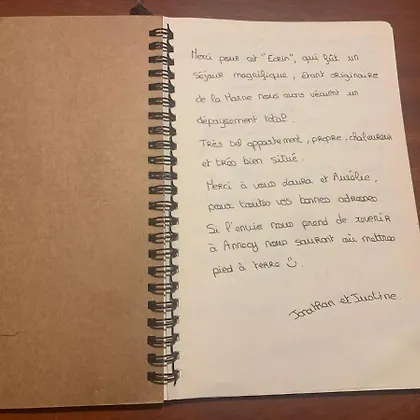 Merci pour cet "Ecrin", qui fût un
séjour magnifique, étant originaire
de la Marne nous avons vécu un
dépaysement total.
Très bel appartement, propre, chaleureux
et très bien situé.
Merci à vous Laura et Aurélie,
pour toutes vos bonnes adresses.
Si l'envie nous prend de revenir
à Annecy nous sauront où mettre
pied à terre ☺.
Jonathan et Justine.